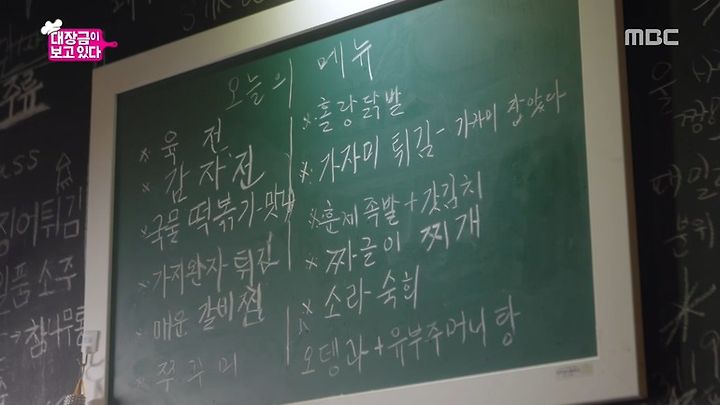 대장금이
보고 있다
MBC
오늘의 메뉴
※ 육전
※ 감자전
※ 국물 떡볶기-맛나
※ 가지완자 튀김
※ 매운 갈비찜
※ 쭈꾸미
※ 홀랑 닭발
※ 가자미 튀김 - 가자미 잡았다
※ 훈제족발 + 갓김치
※ 짜글이 찌개
※ 소라 숙회
오뎅과 + 유부주머니 탕
쥬류
ass
징어튀김
일품 소주
→ 참나무통